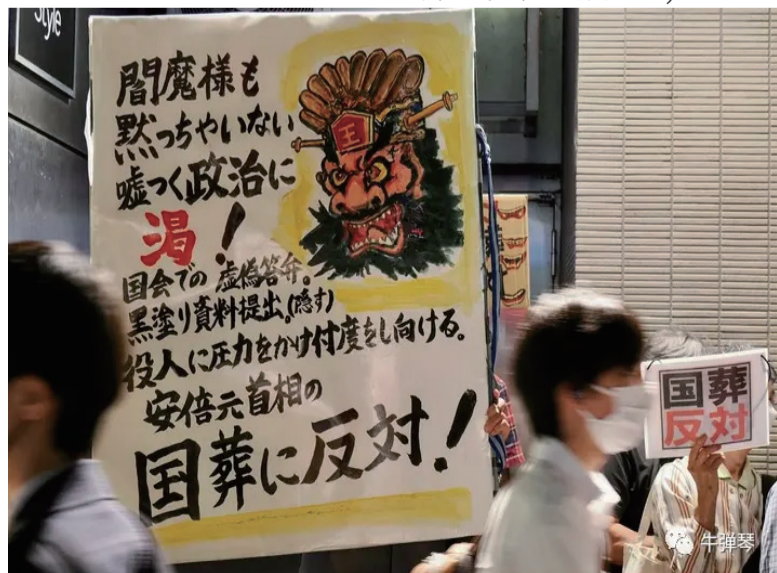 Style
閻魔様も
黙っちゃいない
嘘つく政治に
渇！
国会での虚偽答弁。
黒塗り資料提出。(隠す)
役人に圧力をかけ忖度をし向ける。
安倍元首相の
国葬に反対！
王
国葬
反対
牛弹琴